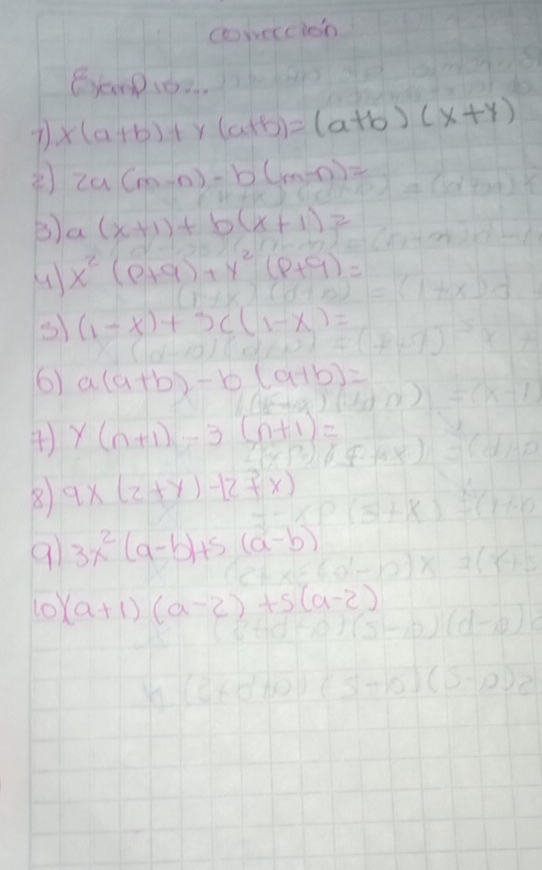 corrección
Ejemplo...
1) x(a+b)+y(a+b)=(a+b)(x+y)
2) 2a(m-n)-b(m-n)=
3) a(x+1)+b(x+1)=
4) x²(p+q)+y²(p+q)=
5) (1-x)+5c(1-x)=
6) a(a+b)-b(a+b)=
7) y(n+1)-3(n+1)=
8) 9x(2+y)-(2+x)
9) 3x²(a-b)+5(a-b)
10) (a+1)(a-2)+5(a-2)